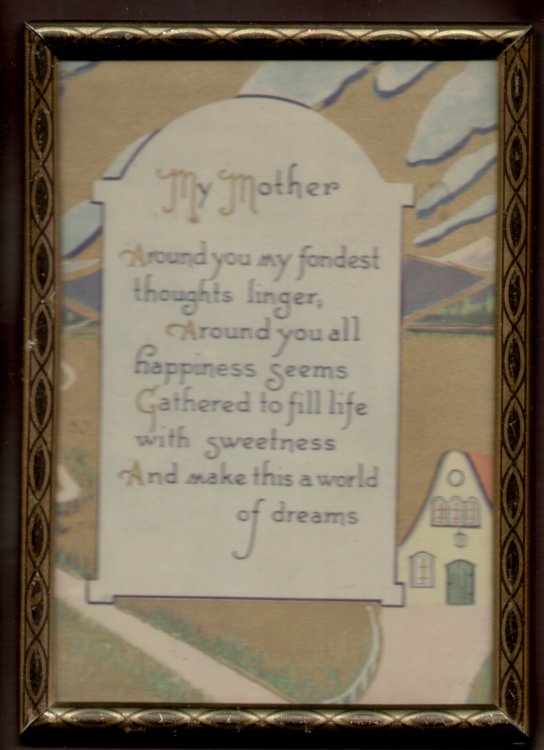 My Mother
Around you my fondest
thoughts linger;
Around you all
happiness seems
Gathered to fill life
with sweetness
And make this a world
of dreams